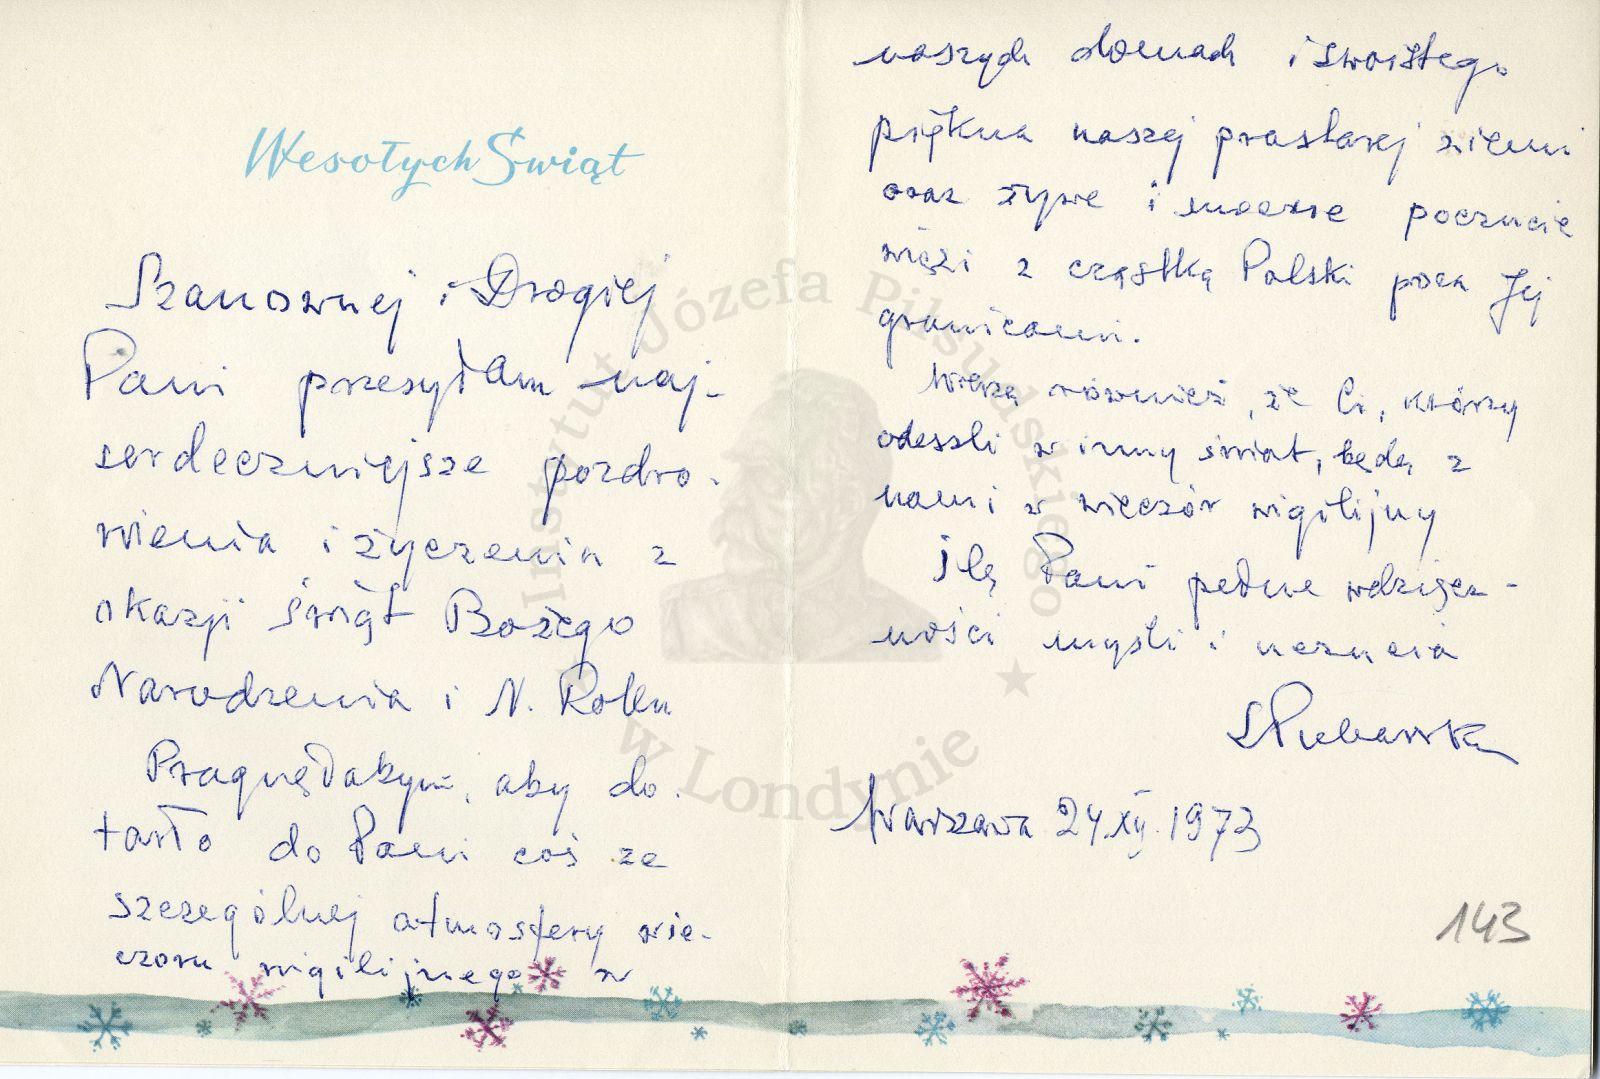 Wesołych Świąt
Szanownej i Drogiej
Pani przesyłam naj-
serdeczniejsze pozdro-
wienia i życzenia z
okazji świąt Bożego
Narodzenia i N. Roku
Pragnęłabym, aby do-
tarło do Pani coś ze
szczególnej atmosfery wie-
czoru wigilijnego w
naszych domach i swoistego
piękna naszej prastarej ziemi
oraz żywe i mocne poczucie
więzi z cząstką Polski poza Jej
granicami.
Wierzę również, że Ci, którzy
odeszli w inny świat, będą z
nami w wieczór wigilijny
Ślę Pani pełne wdzięcz-
ności myśli i uczucia
Warszawa 24.XII.1973
143
Instytut Józefa Piłsudskiego
w Londynie